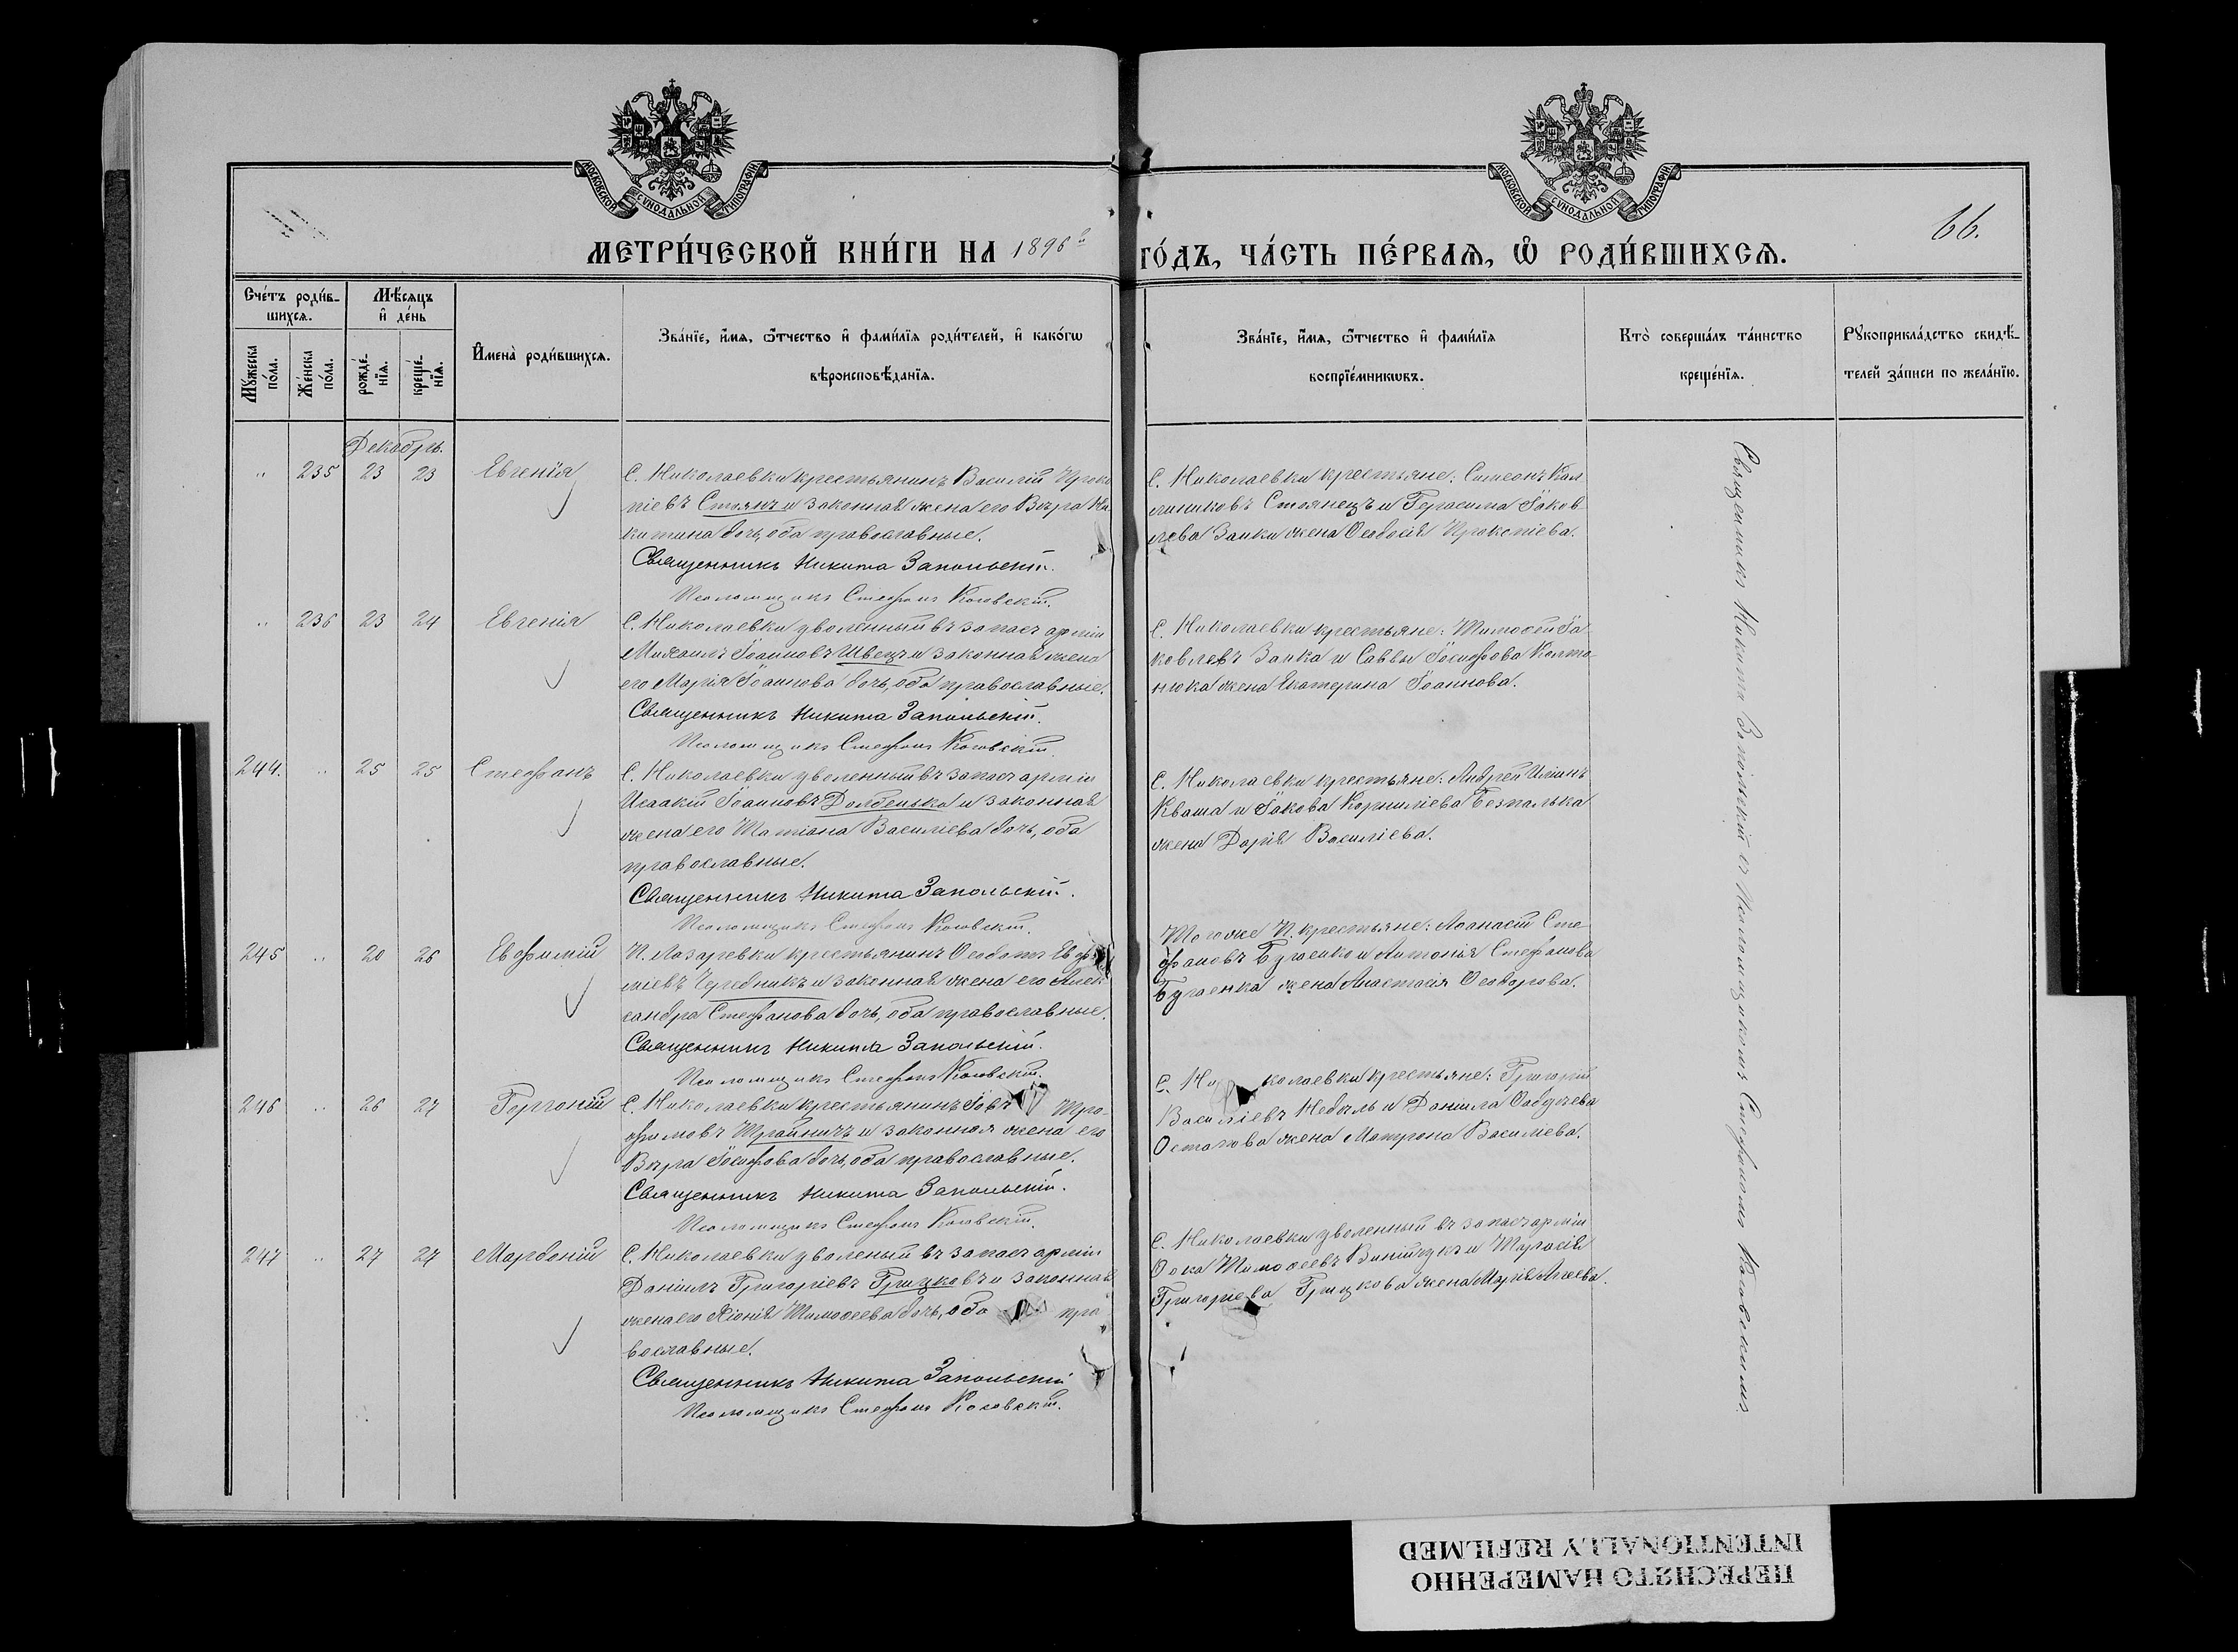 МОСКОВСКОЙ СѴНОДАЛЬНОЙ ТИПОГРАФІИ
МОСКОВСКОЙ СѴНОДАЛЬНОЙ ТИПОГРАФІИ
66.
МЕТРИ́ЧЕСКОЙ КНИ́ГИ НА 1896 г. ГО́ДЪ, ЧА́СТЬ ПЕ́РВАѦ, Ѡ҆ РОДИ́ВШИХСѦ.
Сче́тъ роди́в-
шихсѧ.
Мѣ́сѧцъ
и҆ де́нь
Мꙋ́жеска
по́ла.
Же́нска
по́ла.
рожде́-
нїѧ.
креще́-
нїѧ.
И҆мена̀ роди́вшихсѧ.
Зва́нїе, и҆́мѧ, ѻ҆́тчество и҆ фами́лїѧ роди́телей, и҆ како́гѡ
вѣроисповѣ́данїѧ.
Зва́нїе, и҆́мѧ, ѻ҆́тчество и҆ фами́лїѧ
воспрїе́мникѡвъ.
Кто̀ соверша́лъ та́инство
креще́нїѧ.
Рꙋкоприкла́дство свидѣ́-
телей за́писи по жела́нїю.
Декабрь.
" 235 23 23 Евгенія
С. Николаевки крестьянинъ Василій Проко
піевъ Стоянъ и законная жена его Вѣра Ни
китина дочь, оба православные.
Священникъ Никита Запольскій.
Псаломщикъ Стефанъ Коховскій.
С. Николаевки крестьяне: Симеонъ Кал
линиковъ Стоянецъ и Герасима Іаков
лева Заики жена Ѳеодосія Прокопіева.
" 236 23 24 Евгенія
С. Николаевки уволенный въ запасъ арміи
Михаилъ Іоанновъ Швецъ и законная жена
его Марія Іоаннова дочь, оба православные.
Священникъ Никита Запольскій.
Псаломщикъ Стефанъ Коховскій.
С. Николаевки крестьяне: Тимоѳей Іа
ковлевъ Заика и Саввы Іосифова Колто
нюка жена Екатерина Іоаннова.
244. " 25 25 Стефанъ
С. Николаевки уволенный въ запасъ арміи
Исаакій Іоанновъ Долбенька и законная
жена его Татіана Василіева дочь, оба
православные.
Священникъ Никита Запольскій.
Псаломщикъ Стефанъ Коховскій.
С. Николаевки крестьяне: Андрей Иліинъ
Кваша и Іакова Корниліева Безпалька
жена Дарія Василіева.
245 " 20 26 Евфимій
П. Лазаревки крестьянинъ Ѳеодотъ Евфи
міевъ Чередникъ и законная жена его Алек
сандра Стефанова дочь, оба православные.
Священникъ Никита Запольскій.
Псаломщикъ Стефанъ Коховскій.
Того же П. крестьяне: Аѳанасій Сте
фановъ Бугаенко и Антонія Стефанова
Бугаенка жена Анастасія Ѳеодорова.
246 " 26 27 Горгоній
С. Николаевки крестьянинъ Іовъ Тро-
фимовъ и законная жена его
Вѣра Іосифова дочь, оба православные.
Священникъ Никита Запольскій.
Псаломщикъ Стефанъ Коховскій.
С. Николаевки крестьяне: Григорій
Василіевъ и Даніила
Остапова жена Матрона Василіева.
247 " 27 27 Мардоній
С. Николаевки уволеный въ запасъ арміи
Даніилъ Григоріевъ Грицковъ и законная
жена его Хіонія Тимоѳеева дочь, оба пра
вославные.
Священникъ Никита Запольскій
Псаломщикъ Стефанъ Коховскій.
С. Николаевки уволенный въ запасъ арміи
Ѳока Тимоѳеевъ и Тарасія
Григоріева Грицкова жена Марія Агеева.
Священникъ Никита Запольскій съ Псаломщикомъ Стефаномъ Коховскимъ.
ПЕРЕСНЯТО НАМЕРЕННО
INTENTIONALLY REFILMED